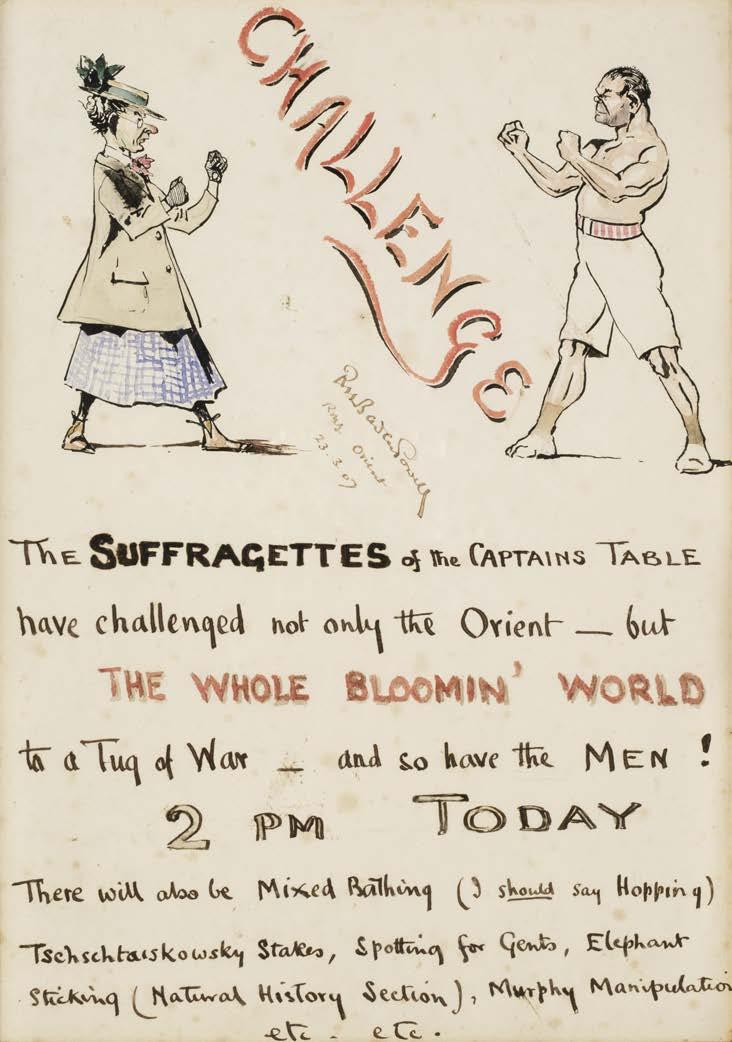 CHALLENGE
RSS Baden Powell
RMS Orient
23.3.07
The SUFFRAGETTES of the CAPTAINS TABLE
have challenged not only the Orient — but
THE WHOLE BLOOMIN' WORLD
to a Tug of War — and so have the MEN !
2 PM TODAY
There will also be Mixed Bathing (I should say Hopping)
Tschschtaiskowsky Stakes, Spotting for Gents, Elephant
Sticking (Natural History Section), Murphy Manipulation
etc. etc.